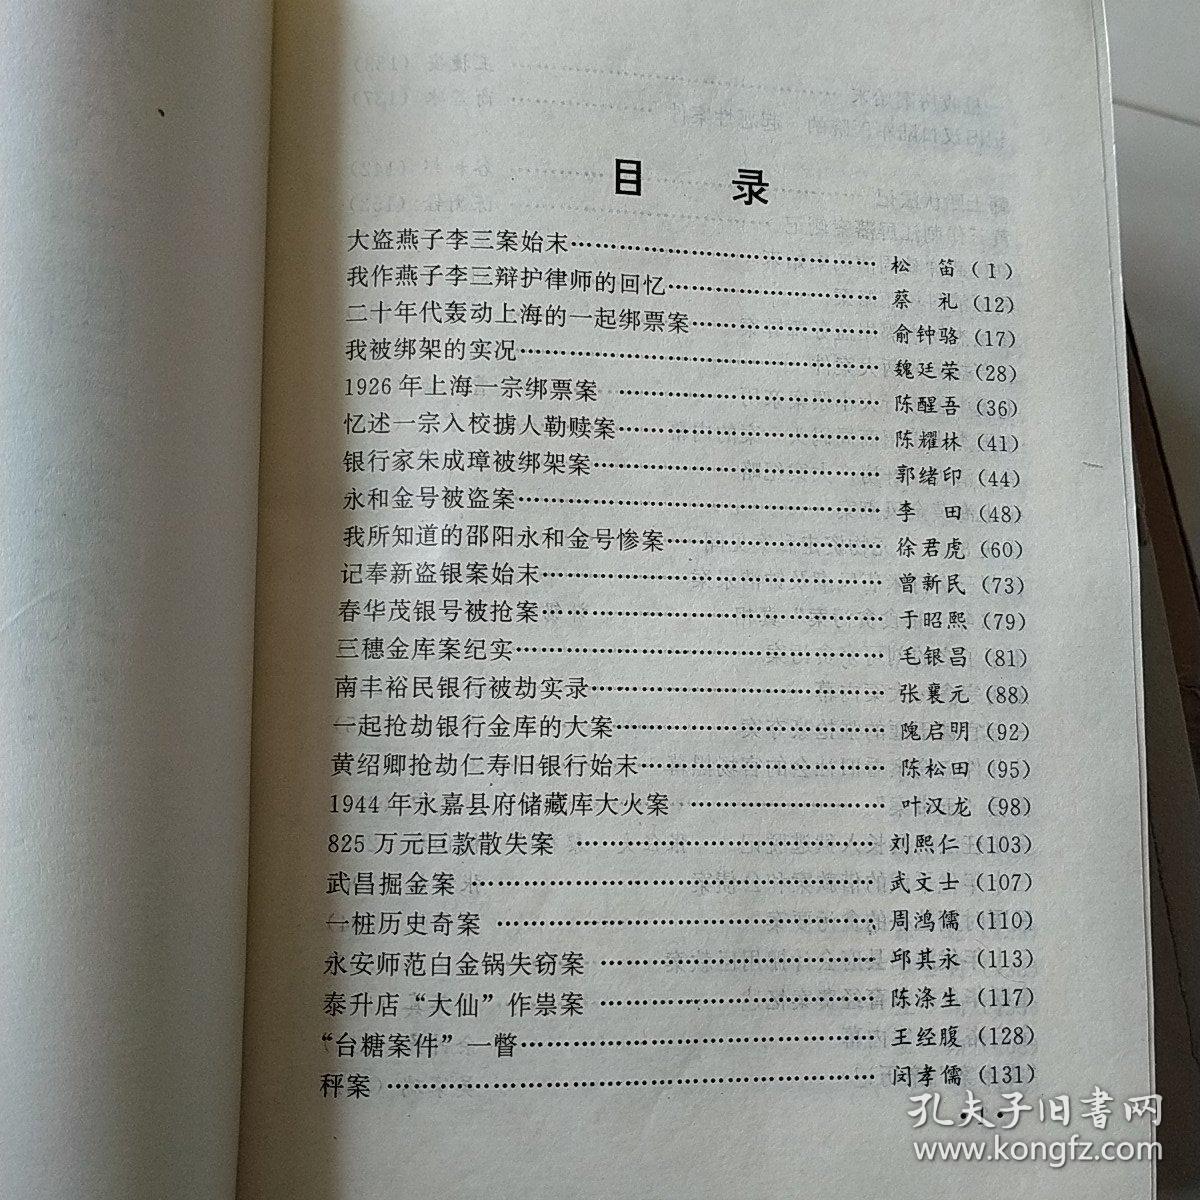 目 录
大盗燕子李三案始末……………………………… 松 笛 (1)
我作燕子李三辩护律师的回忆……………………… 蔡 礼 (12)
二十年代轰动上海的一起绑票案………………… 俞钟骆 (17)
我被绑架的实况…………………………………… 魏廷荣 (28)
1926年上海一宗绑票案 ………………………… 陈醒吾 (36)
忆述一宗入校掳人勒赎案………………………… 陈耀林 (41)
银行家朱成璋被绑架案…………………………… 郭绪印 (44)
永和金号被盗案…………………………………… 李 田 (48)
我所知道的邵阳永和金号惨案…………………… 徐君虎 (60)
记奉新盗银案始末………………………………… 曾新民 (73)
春华茂银号被抢案………………………………… 于昭熙 (79)
三穗金库案纪实…………………………………… 毛银昌 (81)
南丰裕民银行被劫实录…………………………… 张襄元 (88)
一起抢劫银行金库的大案………………………… 隗启明 (92)
黄绍卿抢劫仁寿旧银行始末……………………… 陈松田 (95)
1944年永嘉县府储藏库大火案 ………………… 叶汉龙 (98)
825万元巨款散失案 …………………………… 刘熙仁 (103)
武昌掘金案 ……………………………………… 武文士 (107)
一桩历史奇案 …………………………………… 周鸿儒 (110)
永安师范白金锅失窃案 ………………………… 邱其永 (113)
泰升店“大仙”作祟案 ………………………… 陈涤生 (117)
“台糖案件”一瞥………………………………… 王经腹 (128)
秤案………………………………………………… 闵孝儒 (131)
·1·
孔夫子旧书网
www.kongfz.com